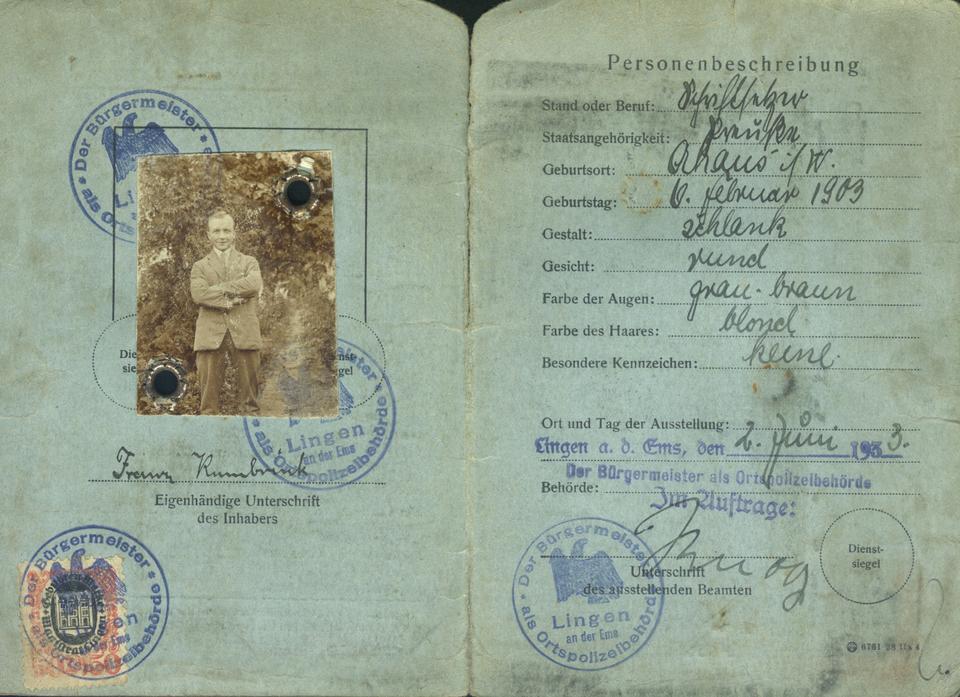 Der Bürgermeister
als Ortspolizeibehörde
Lingen
an der Ems
Franz Kumbrink
Eigenhändige Unterschrift
des Inhabers
Der Bürgermeister
als Ortspolizeibehörde
an der Ems
Personenbeschreibung
Stand oder Beruf: Schriftsetzer
Staatsangehörigkeit: Preuße
Geburtsort: Ahaus i/W.
Geburtstag: 6. Februar 1903
Gestalt: schlank
Gesicht: rund
Farbe der Augen: grau-braun
Farbe des Haares: blond
Besondere Kennzeichen: keine.
Ort und Tag der Ausstellung:
Lingen a. d. Ems, den 2. Juni 1933.
Der Bürgermeister als Ortspolizeibehörde
Behörde:
Im Auftrage:
Unterschrift
des ausstellenden Beamten
Der Bürgermeister
als Ortspolizeibehörde
Lingen
an der Ems
Dienst-
siegel